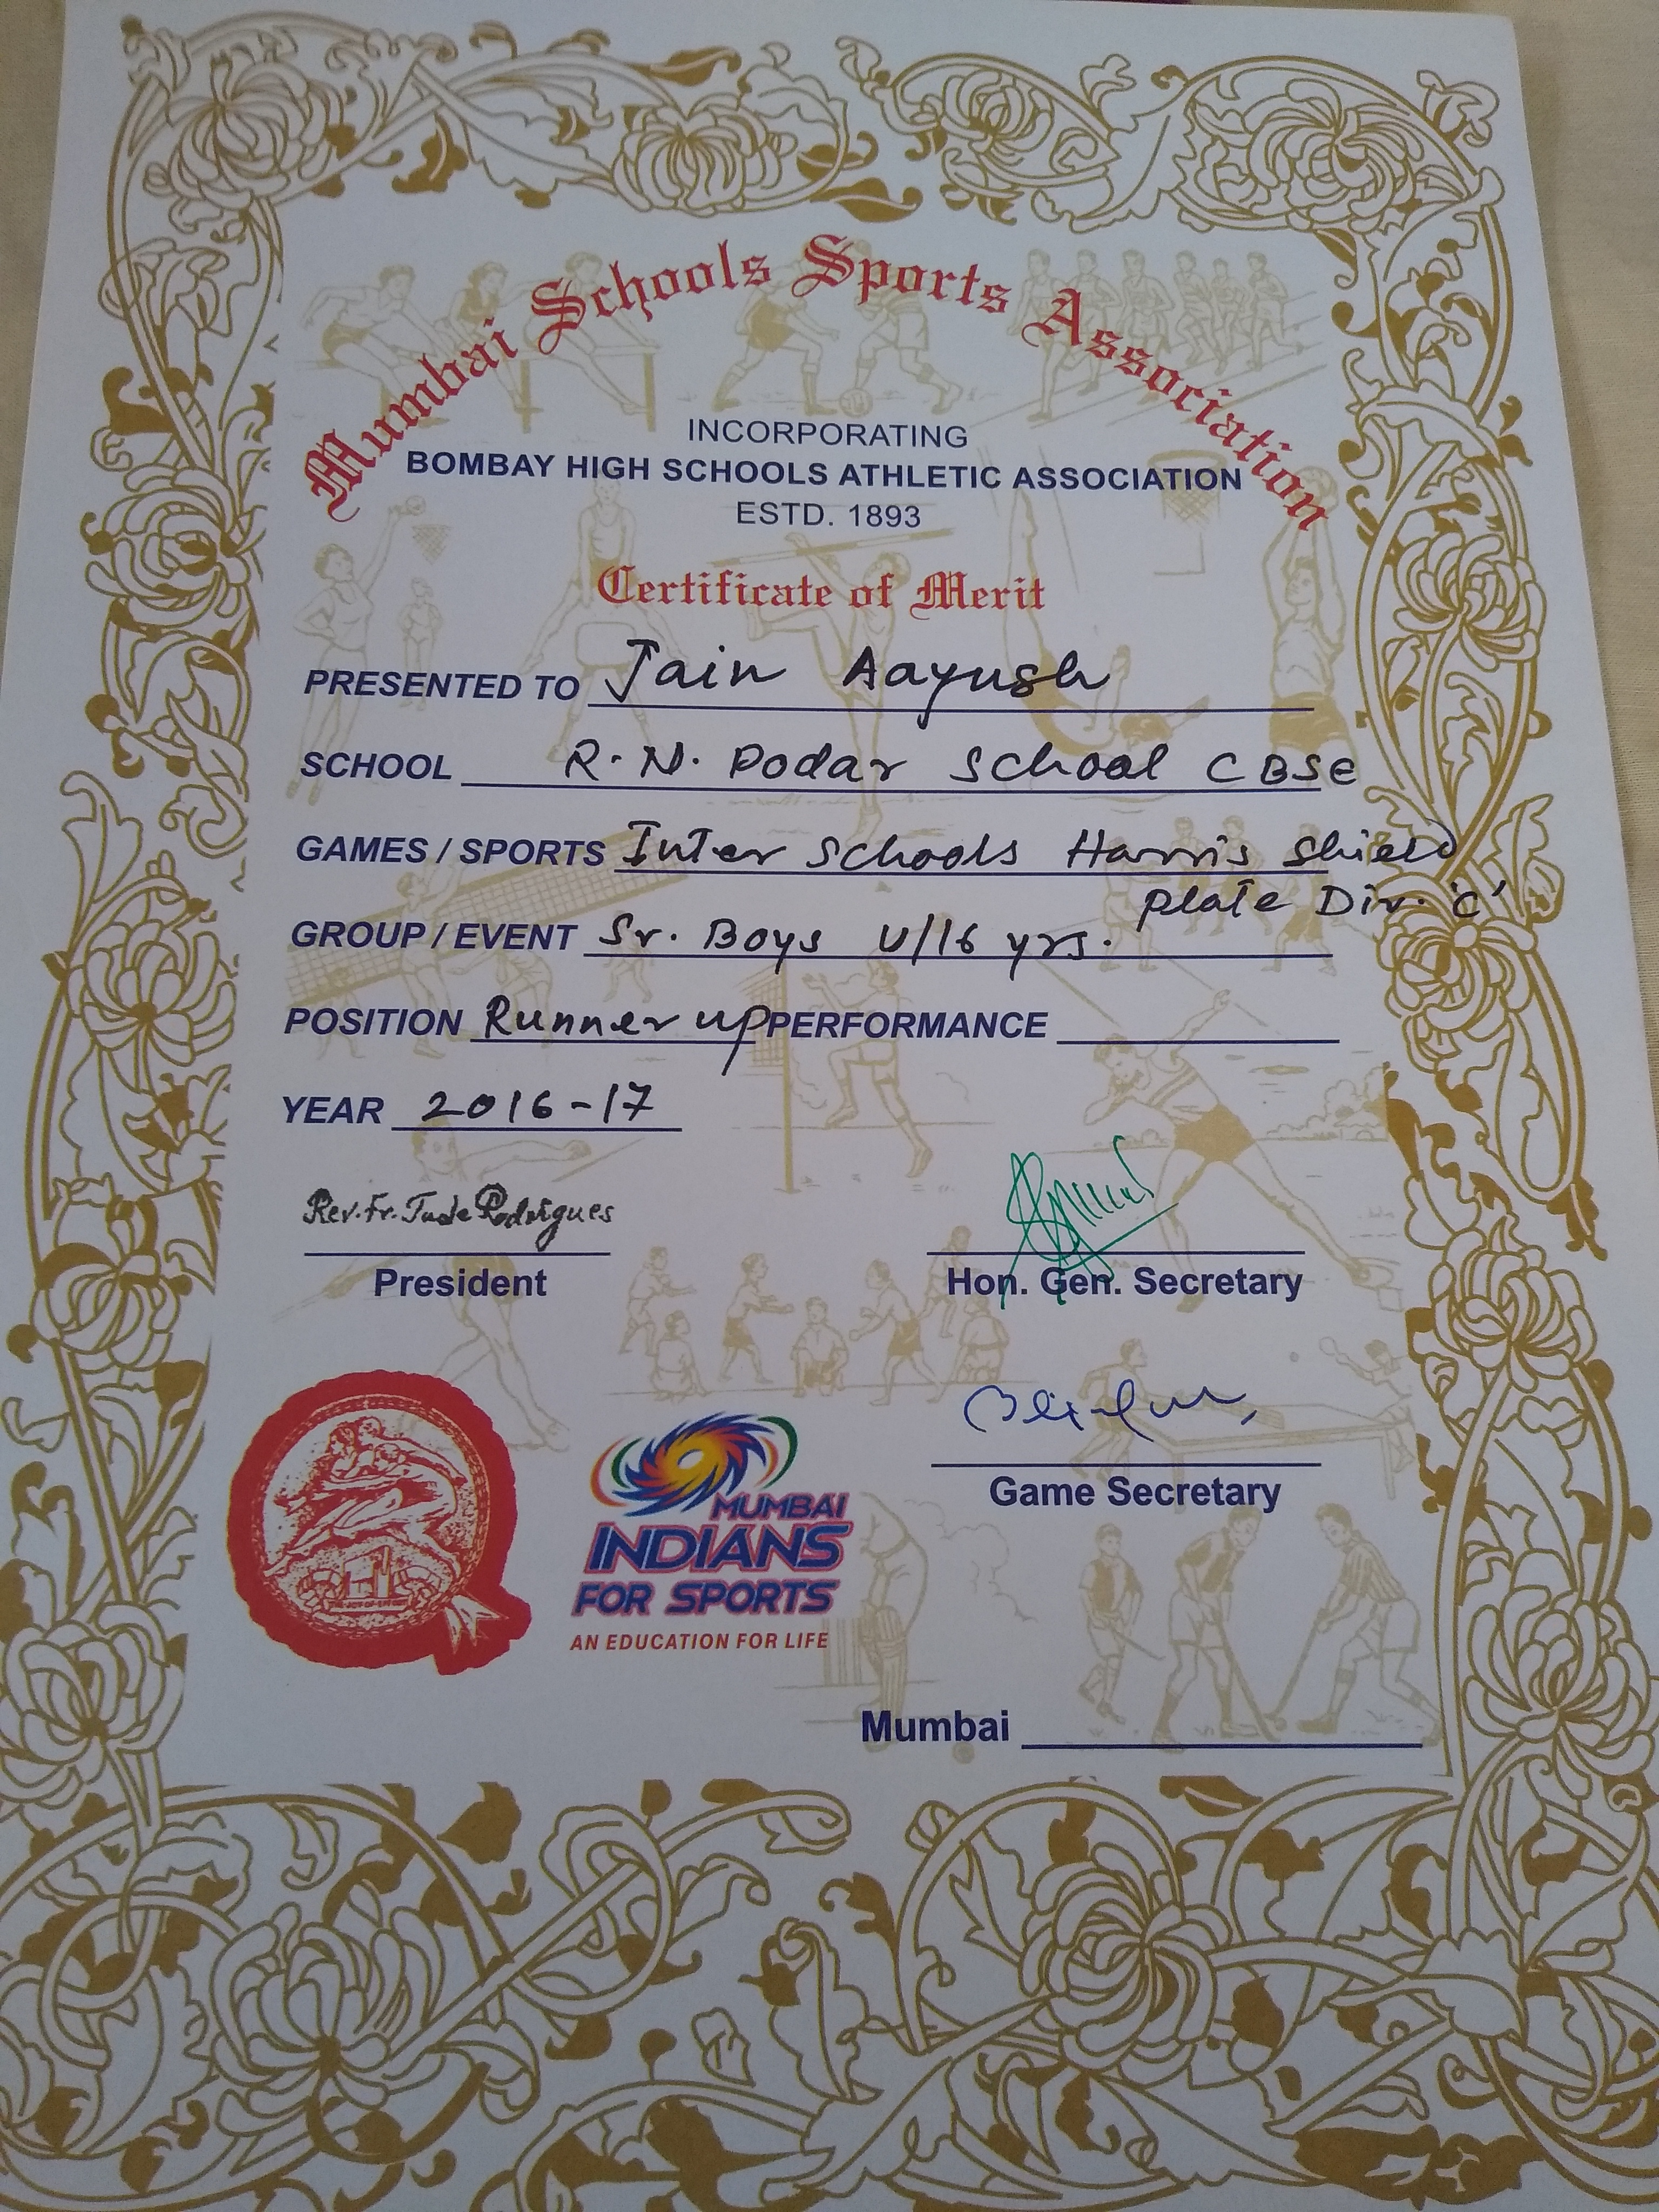 Mumbai Schools Sports Association
INCORPORATING
BOMBAY HIGH SCHOOLS ATHLETIC ASSOCIATION
ESTD. 1893
Certificate of Merit
PRESENTED TO Jain Aayush
SCHOOL R. N. Podar School CBSE
GAMES / SPORTS Inter Schools Harris Shield
Plate Div. 'C'
GROUP / EVENT Sr. Boys U/16 yrs.
POSITION Runner up PERFORMANCE
YEAR 2016-17
Rev. Fr. Jude Rodrigues
President
Hon. Gen. Secretary
Game Secretary
MUMBAI
INDIANS
FOR SPORTS
AN EDUCATION FOR LIFE
Mumbai